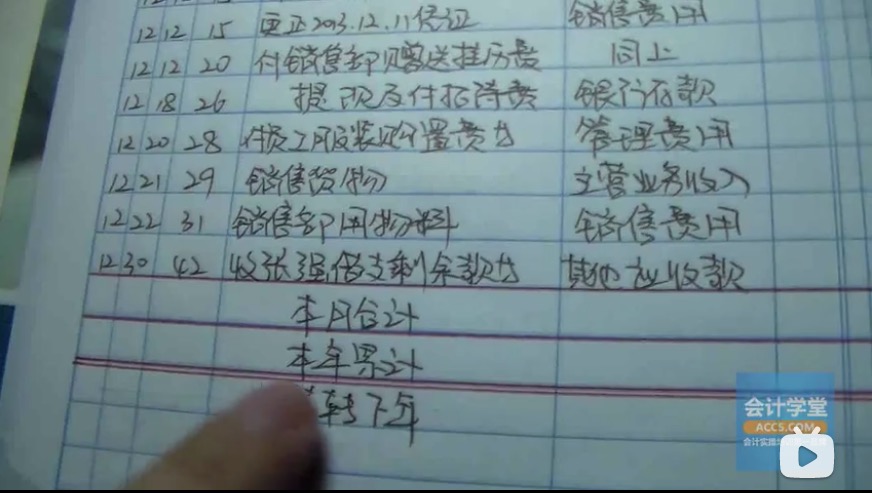 12 12 15 更正2013.12.11凭证 销售费用
12 12 20 付销售部赠送挂历费 同上
12 18 26 提现及付招待费 银行存款
12 20 28 付员工服装购置费 管理费用
12 21 29 销售货物 主营业务收入
12 22 31 销售部用物料 销售费用
12 30 42 收张强借支剩余款 其他应收款
本月合计
本年累计
转下年
会计学堂
ACCS.COM